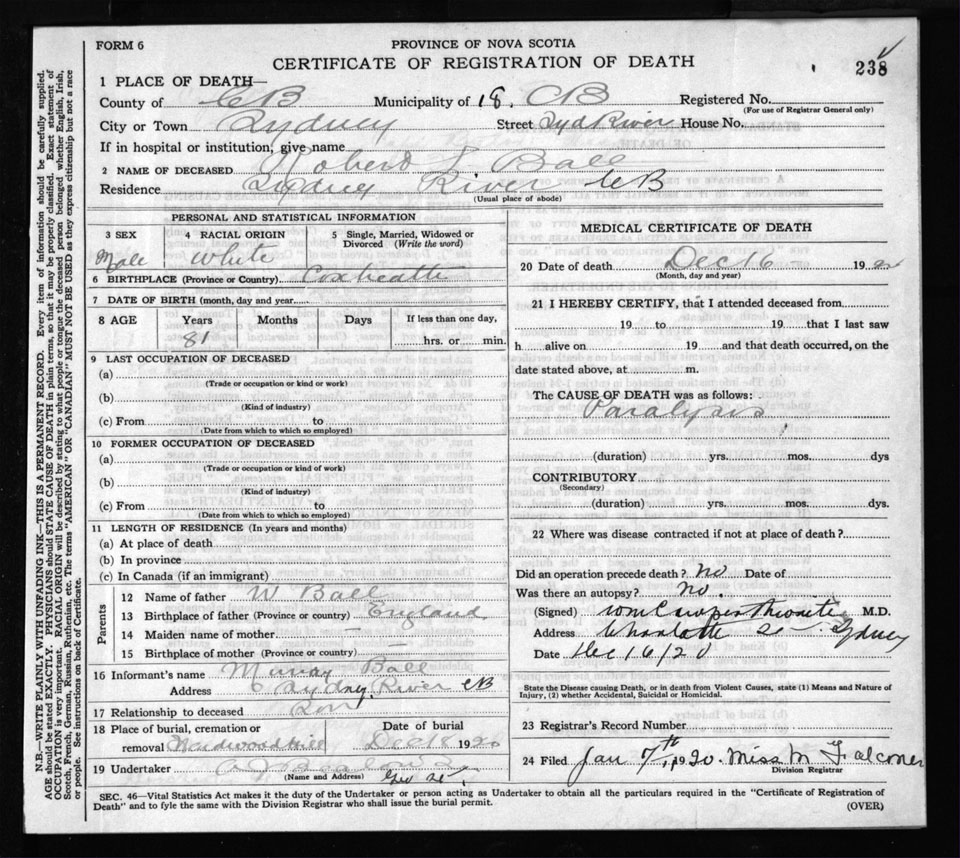 FORM 6
PROVINCE OF NOVA SCOTIA
CERTIFICATE OF REGISTRATION OF DEATH
238
1 PLACE OF DEATH—
County of CB Municipality of 18. CB Registered No.
(For use of Registrar General only)
City or Town Sydney Street Syd River House No.
If in hospital or institution, give name
2 NAME OF DECEASED Robert J. Ball
Residence Sydney River CB
(Usual place of abode)
PERSONAL AND STATISTICAL INFORMATION
3 SEX 4 RACIAL ORIGIN 5 Single, Married, Widowed or Divorced (Write the word)
Male White
6 BIRTHPLACE (Province or Country) Coxheath
7 DATE OF BIRTH (month, day and year)
8 AGE Years Months Days If less than one day,
81 hrs. or min.
9 LAST OCCUPATION OF DECEASED
(a)
(Trade or occupation or kind or work)
(b)
(Kind of industry)
(c) From to
(Date from which to which so employed)
10 FORMER OCCUPATION OF DECEASED
(a)
(Trade or occupation or kind of work)
(b)
(Kind of industry)
(c) From to
(Date from which to which so employed)
11 LENGTH OF RESIDENCE (In years and months)
(a) At place of death
(b) In province
(c) In Canada (if an immigrant)
Parents
12 Name of father W Ball
13 Birthplace of father (Province or country) England
14 Maiden name of mother —
15 Birthplace of mother (Province or country) —
16 Informant's name Murray Ball
Address Sydney River CB
17 Relationship to deceased Son
18 Place of burial, cremation or removal Hardwood Hill Date of burial Dec 18 1920
19 Undertaker A J Geo St.
(Name and Address)
MEDICAL CERTIFICATE OF DEATH
20 Date of death Dec 16 — 1920
(Month, day and year)
21 I HEREBY CERTIFY, that I attended deceased from
19 to 19 that I last saw
h alive on 19 and that death occurred, on the
date stated above, at m.
The CAUSE OF DEATH was as follows:
Paralysis
(duration) yrs. mos. dys
CONTRIBUTORY
(Secondary)
(duration) yrs. mos. dys.
22 Where was disease contracted if not at place of death?
Did an operation precede death? No Date of
Was there an autopsy? No.
(Signed) Wm Cowperthwaite M.D.
Address Charlotte St — Sydney
Date Dec 16/20
State the Disease causing Death, or in death from Violent Causes, state (1) Means and Nature of
Injury, (2) whether Accidental, Suicidal or Homicidal.
23 Registrar's Record Number
24 Filed Jan 7th 1920. Miss M Falconer
Division Registrar
SEC. 46—Vital Statistics Act makes it the duty of the Undertaker or person acting as Undertaker to obtain all the particulars required in the "Certificate of Registration of
Death" and to fyle the same with the Division Registrar who shall issue the burial permit.
(OVER)
N.B.—WRITE PLAINLY WITH UNFADING INK—THIS IS A PERMANENT RECORD. Every item of information should be carefully supplied.
AGE should be stated EXACTLY. PHYSICIANS should STATE CAUSE OF DEATH in plain terms, so that it may be properly classified. Exact statement of
OCCUPATION is very important. RACIAL ORIGIN will be described by stating to what people or tongue the deceased person belonged whether English, Irish,
Scotch, French, German, Russian, Ruthenian, etc. The terms "AMERICAN" OR "CANADIAN" MUST NOT BE USED as they express citizenship but not a race
or people. See instructions on back of Certificate.